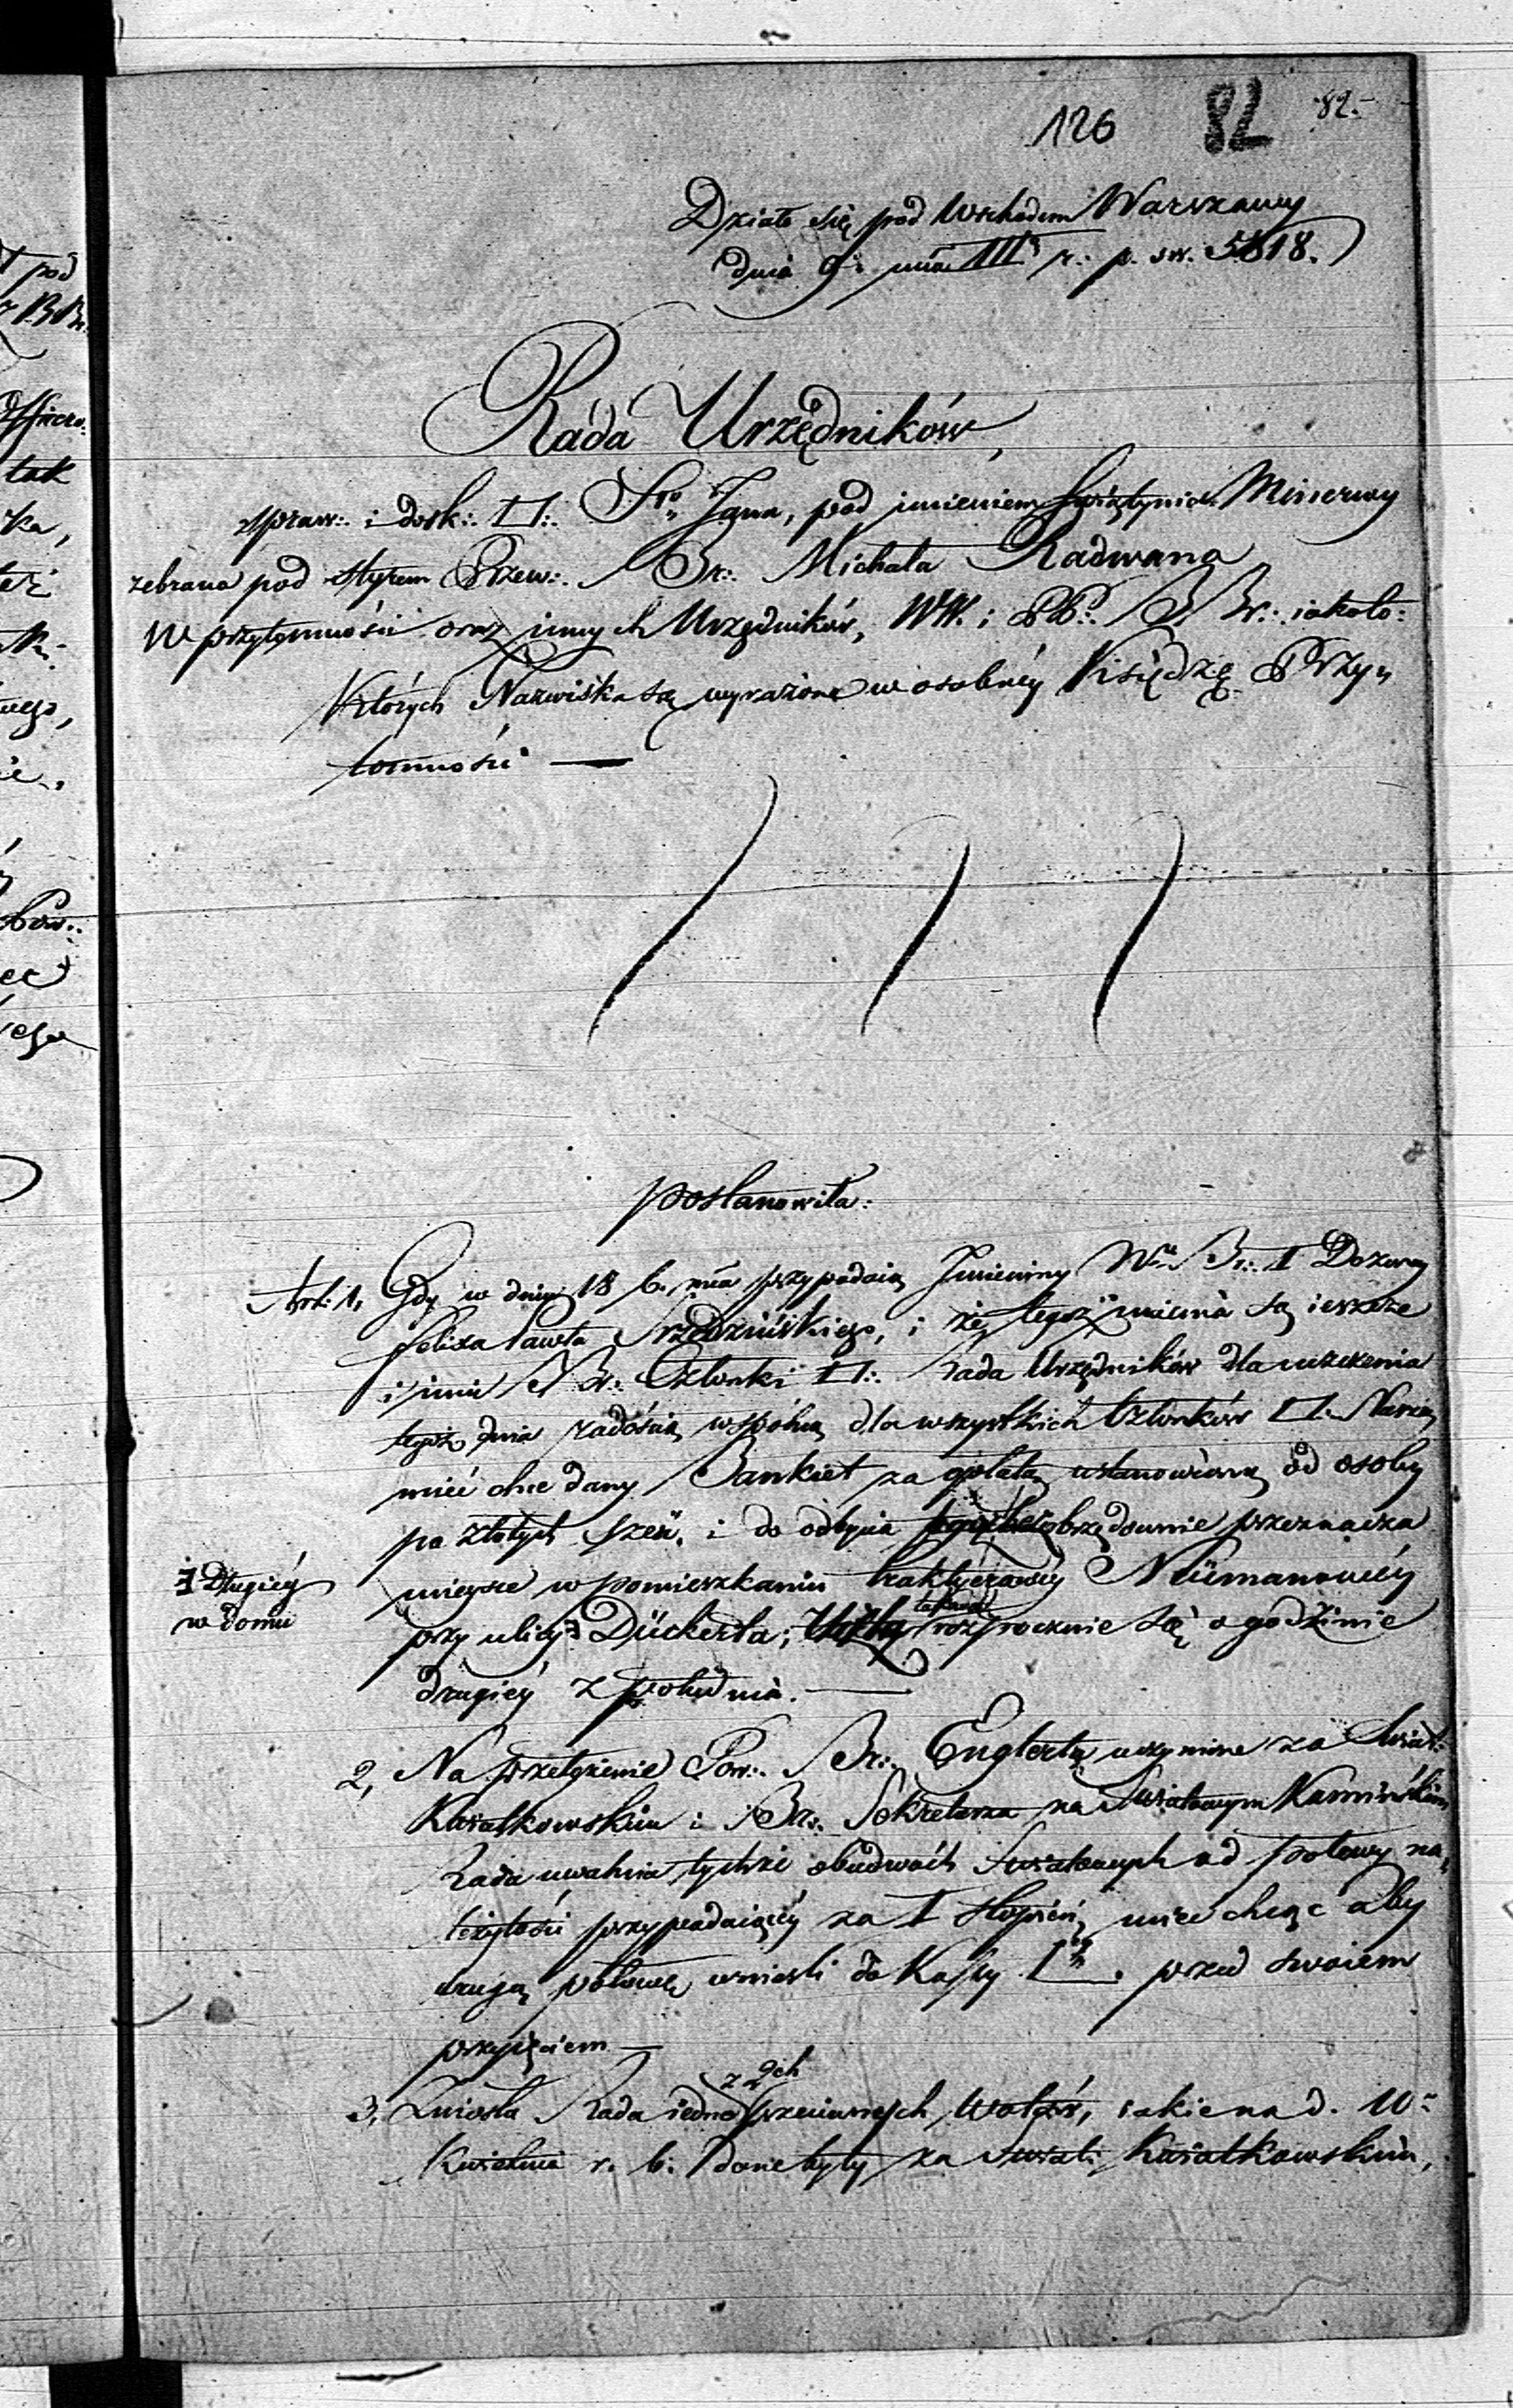 126 82 82.
Działo się pod Wschodem Warszawy
dnia 9: mca III r: p. sw. 5818.
Ráda Urzędników,
spraw: i dosk: □: S<sup>go</sup> Jana, pod imieniem Swiątynia Minerwy
zebrana pod styrem Przew: Br: Michała Radwana
W przytomności oraz innych Urzędników, WW. i PP: B Br: iakoto:
Których Nazwiska są wyrażone w osobnéy Xsiędzę Przy„
tomności —
postanowiła:
Art: 1, Gdy w dniu 18 b. mca przypadaią Jmieniny W. Br: I Dozorcy
Felixa Pawła i że tegoż imienia są ieszcze
i inni B Br: Członki □: Rada Urzędników dla uczczenia
tegoż dnia radością wspólną dla wszystkich Członków □. Naszéy
mieć chce dany Bankiet za opłatą ustanowioną od osoby
po złotych sześć. i do odbycia obrzędownie przeznacza
mieysce w pomieszkaniu traktyerowéy Neümanowéy
przy ulicy ⹎ Dückerta; rozpocznie się o godzinie
⹎ Długiéy
w domu
drugiéy z południa. —
2, Na przełożenie Pow: Br: Englerta uczynione za Swiat:
Kwiatkowskim i Br: Sekretarza za Swiatowym Kamińskim
Rada uwalnia tychże obudwóch Swiatowych od połowy na„
leżytości przypadaiącéy za I stopień, mieć chcąc aby
drugą połowę wnieśli do Kassy □ przed swoiem
przyięciem —
3, Zniosła Rada iedną z 2ch przeciwnych Wotów, iakie na d. 10
Kwietnia r. b. dane były za Swiat: Kwiatkowskim,